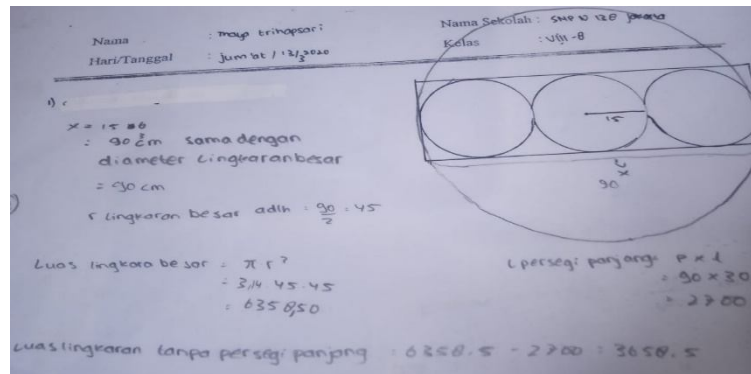 Nama : maya trihapsari
Nama Sekolah : SMP N 128 jakarta
Hari/Tanggal : jum'at / 13/3 2020
Kelas : VIII - B
1)
x = 15
= 90 cm sama dengan
diameter Lingkaran besar
= 90 cm
r lingkaran besar adlh = 90/2 = 45
15
x
90
Luas lingkara besar = π r²
= 3,14 . 45 . 45
= 6358,50
L persegi panjang = p x l
= 90 x 30
= 2700
Luas lingkaran tanpa persegi panjang = 6358.5 - 2700 = 3658.5